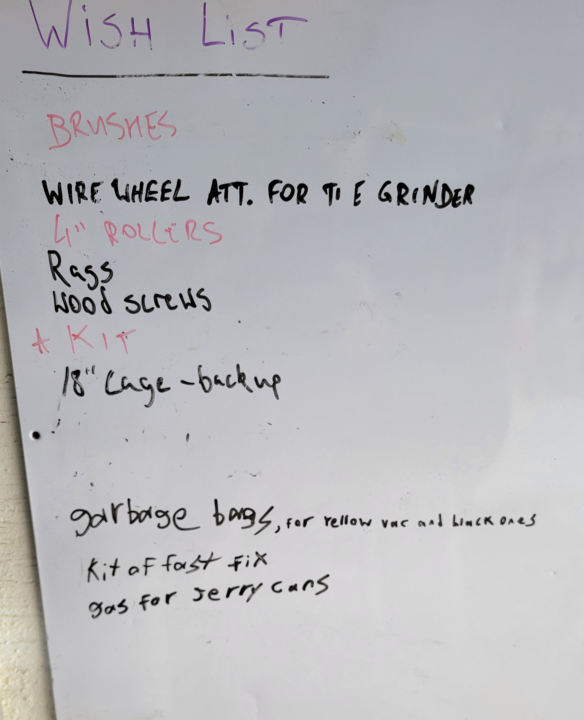 WISH LIST
BRUSHES
WIRE WHEEL ATT. FOR GRINDER
4" ROLLERS
Rags
Wood screws
KIT
18" Cage - backup
garbage bags, for yellow vac and black ones
Kit of fast fix
gas for Jerry cans